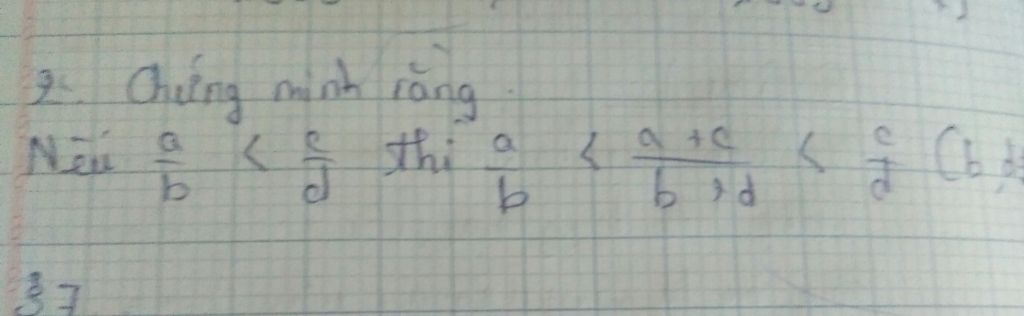 2. Chứng minh rằng.
Nếu a/b < c/d thì a/b < a+c/b+d < c/d (b,d
37